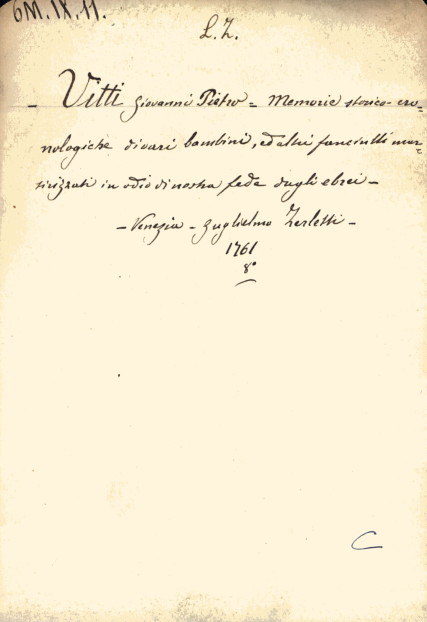 6M.IX.11.
L.Z.
- Vitti Giovanni Pietro = Memorie storico-cro=
nologiche di vari bambini, ed altri fanciulli mar=
tirizzati in odio di nostra fede dagli ebrei -
- Venezia - Guglielmo Zerletti -
1761
8°
C